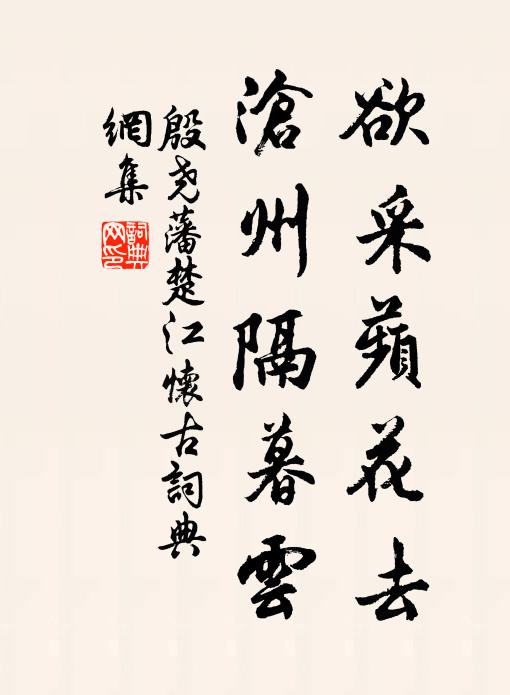 欲采蘋花去
滄州隔暮雲
殷尧藩楚江懷古詞典
網集
詞典
网印